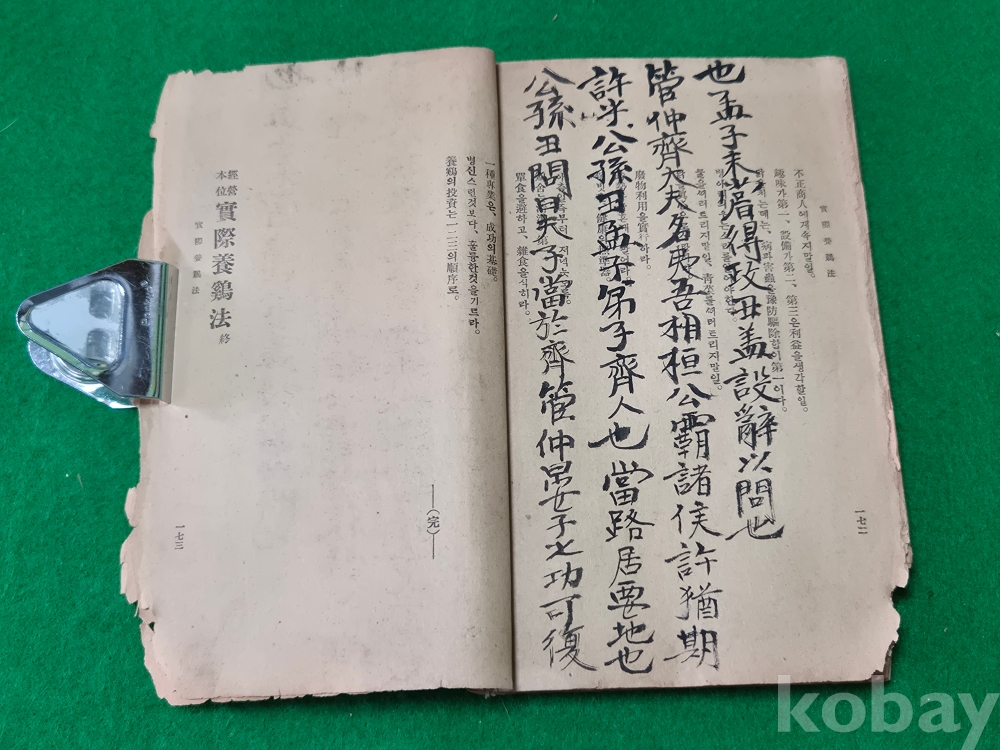 實際養鷄法
一七二
不正商人에게속지말일。
趣味가第一、設備가第二、第三은利益을생각할일。
病과害蟲을豫防驅除함이第一이다。
靑菜를떠러트리지말일。
廢物利用을實行하라。
單食을避하고、雜食을식히라。
公孫丑問曰夫子當於齊管仲晏子之功可復
許乎公孫丑孟子弟子齊人也當路居要地也
管仲齊大夫名夷吾相桓公霸諸侯許猶期
也孟子未嘗得政丑盖設辭以問也
一種專業은、成功의基礎。
병신스런것보다、훌륭한것을기르라。
養鷄의投資는一二三의順序로。
―(完)―
經營本位 實際養鷄法 終
實際養鷄法
一七三
kobay